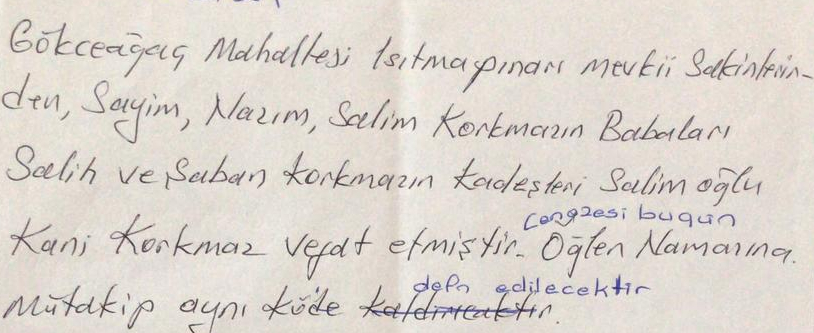 Gökceağaç Mahallesi Isıtmapınarı mevkii Sakinlerin-
den, Sayim, Nazım, Salim Korkmazın Babaları
Salih ve Şaban Korkmazın Kadeşleri Salim oğlu
cenazesi bugün
Kani Korkmaz vefat etmiştir. Öğlen Namazına.
defn edilecektir
Mütakip aynı köde kaldırılacaktır.